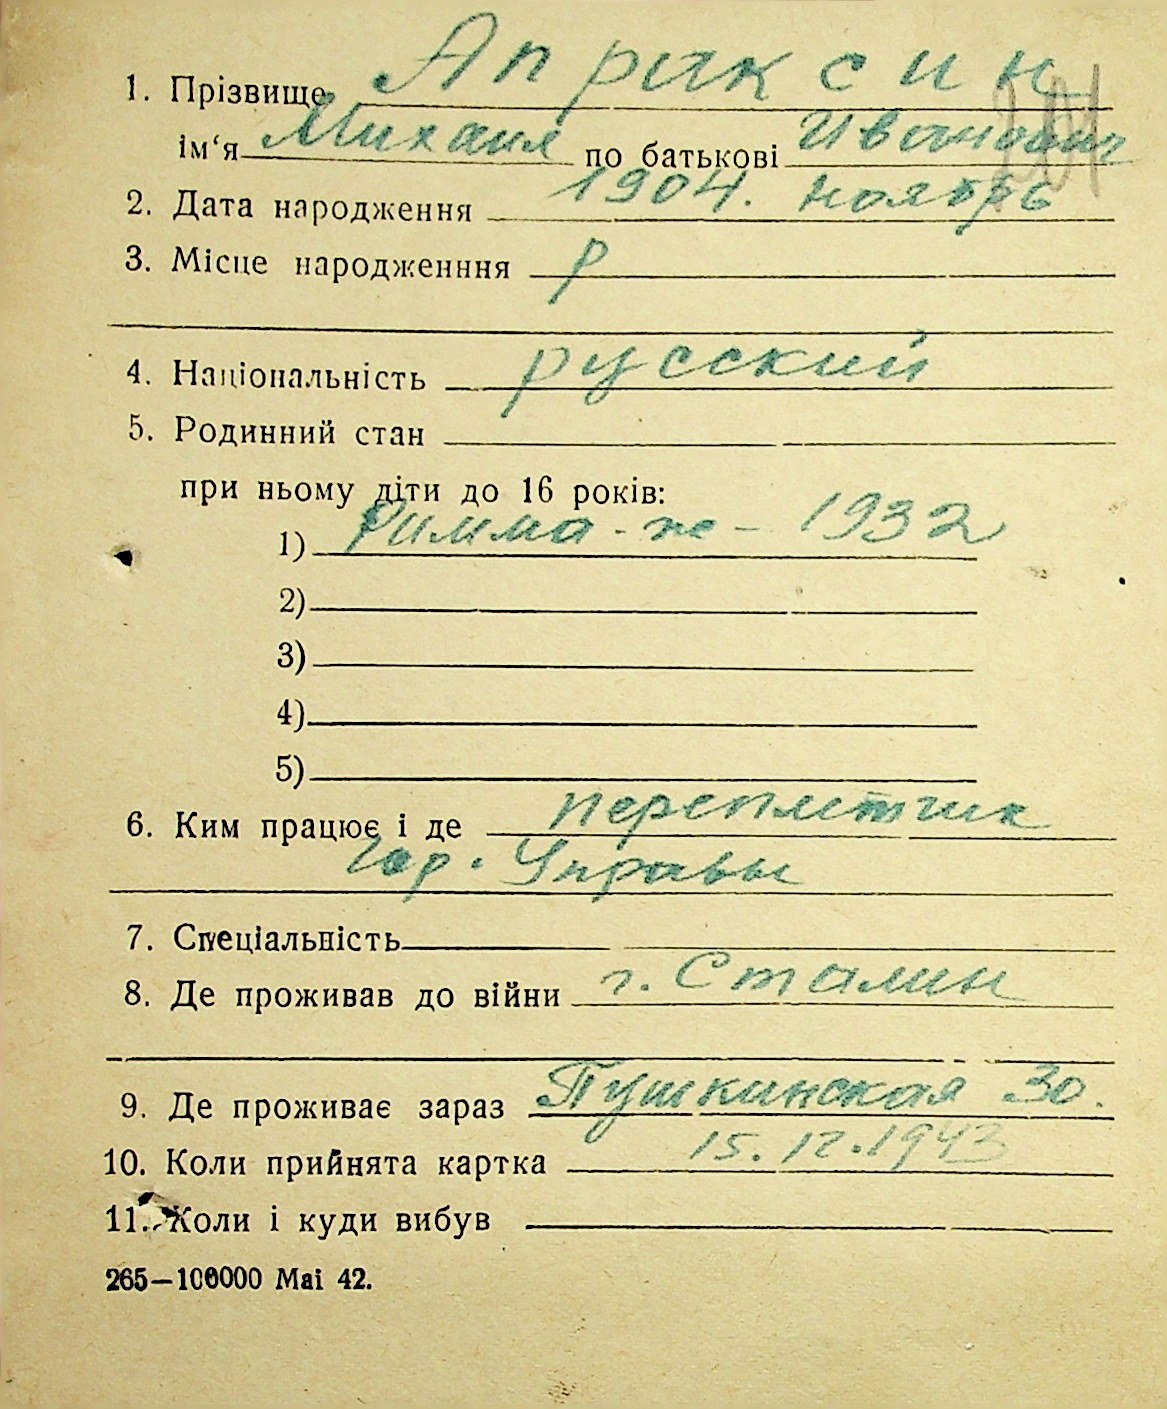 1. Прізвище Априксин
ім‘я Михаил по батькові Иванович
2. Дата народження 1904. ноябрь
3. Місце народженння р
4. Національність русский
5. Родинний стан
при ньому діти до 16 років:
1) Римма - ж - 1932
2)
3)
4)
5)
6. Ким працює і де переплетчик
Гор. Управы
7. Спеціальність
8. Де проживав до війни г. Сталин
9. Де проживає зараз Пушкинская 30.
10. Коли прийнята картка 15.12.1943
11. Коли і куди вибув
265—100000 Mai 42.